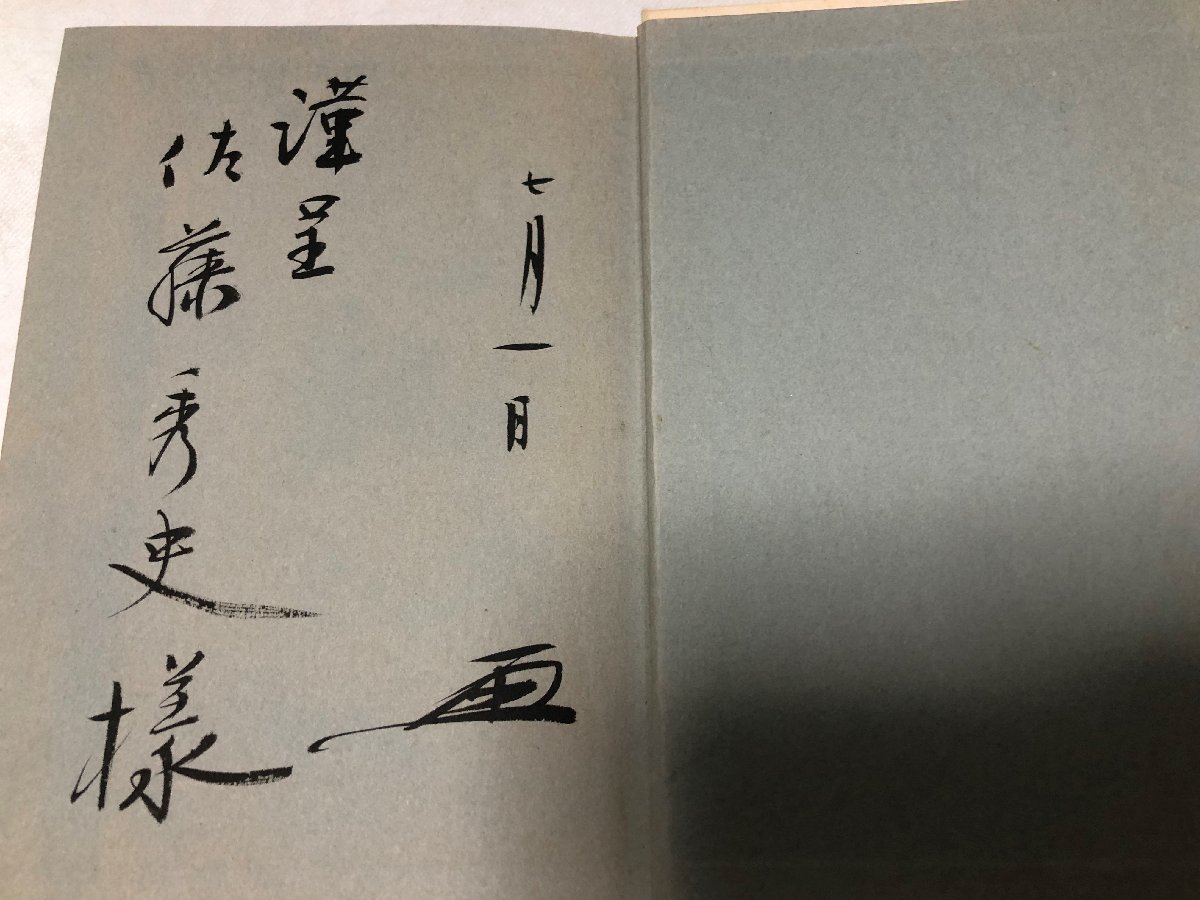 七月一日
謹呈
佐藤秀史様